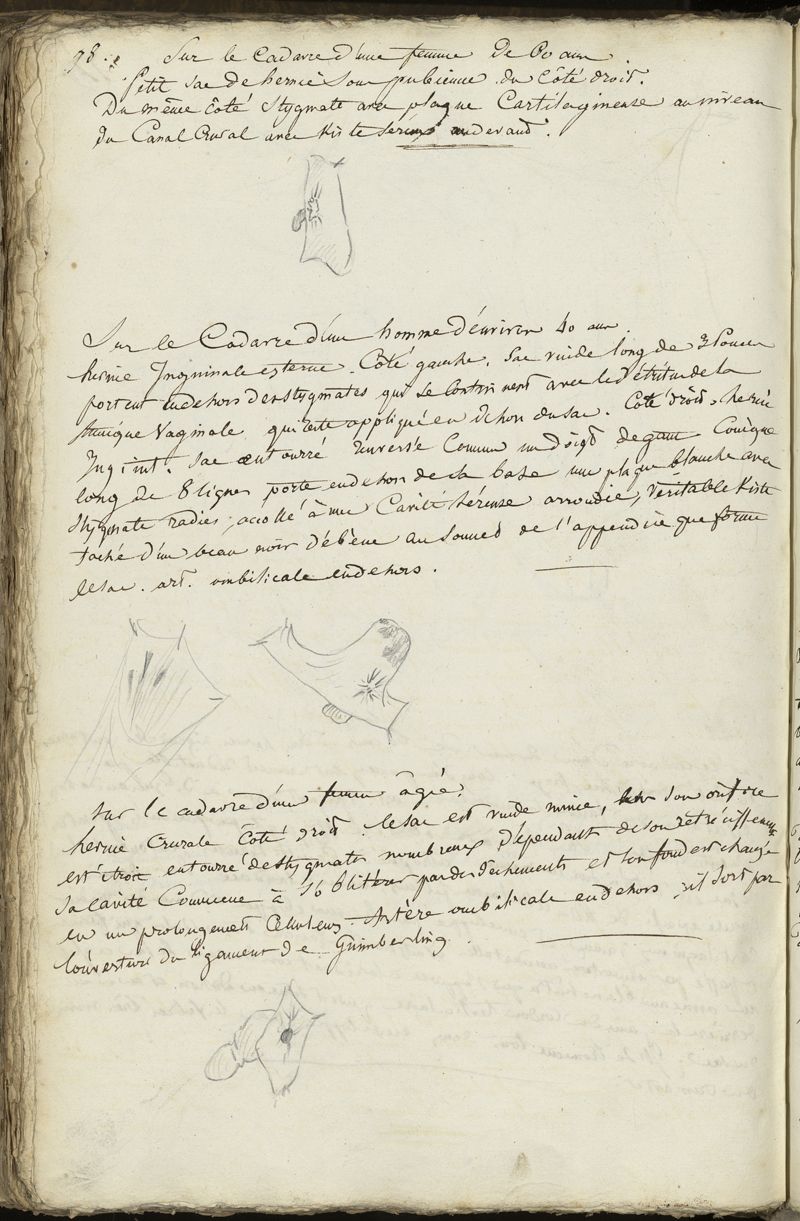 98.
Sur le Cadavre d'une femme De 60 ans.
Petit sac de hernie Sous pubienne du Côté droit.
Du même côté Stygmate avec plaque Cartilagineuse au niveau
du Canal Crural avec Kiste séreux audevant.
Sur le Cadavre d'un homme d'environ 40 ans.
hernie Inguinale externe. Côté gauche. Sac vuide long de 3 pouces
portant endehors des stygmates qui se Continuent avec les de la
tunique Vaginale qui reste appliqué en dehors du sac. Côté droit. hernie
Ing. int. Sac entouré renversé Comme un doigt de gant Conique
long de 8 lignes porte endehors de sa base une plaque blanche avec
stygmate radiés, accollé à une Cavité Séreuse arrondie, Véritable Kiste
taché d'un beau noir d'ébène au Sommet de l'appendice que forme
le sac. art. ombilicale endehors.
Sur le cadavre d'un femme âgée.
hernie Crurale Côté droit. le sac est vuide mince, son orifice
est étroit entouré de stygmates nombreux Dépendants de son rétrécissement
sa cavité Commence à s'oblitérer par des et son fond est changé
en un prolongement Celluleux. Artère ombilicale endehors, il sort par
l'ouverture du ligament de Gimbernat.